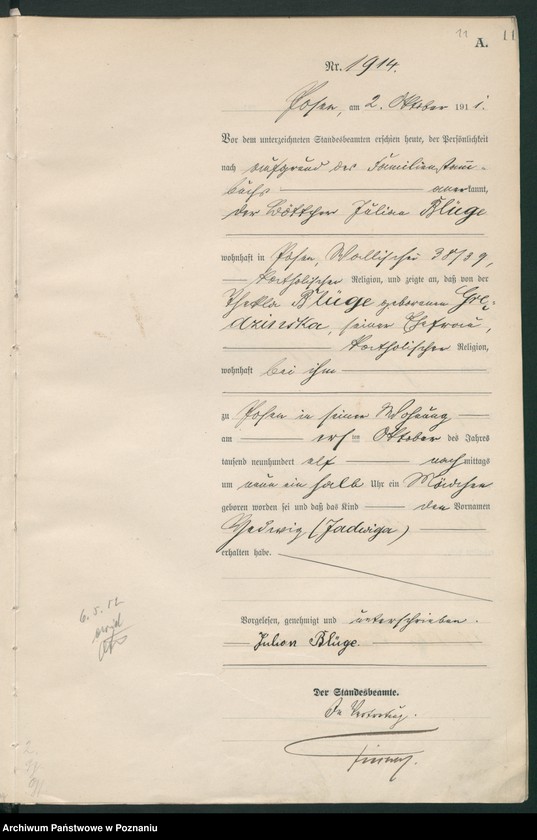 11 11
A.
Nr. 1914.
Posen, am 2. Oktober 1911.
Vor dem unterzeichneten Standesbeamten erschien heute, der Persönlichkeit
nach auf Grund des Familienstamm-
buchs anerkannt,
der Böttcher Julian Blüge
wohnhaft in Posen, Wallischei 38/39,
katholischer Religion, und zeigte an, daß von der
Thekla Blüge geborenen Gre-
dzinska, seiner Ehefrau,
katholischer Religion,
wohnhaft bei ihm
zu Posen in seiner Wohnung
am ersten Oktober des Jahres
tausend neunhundert elf nachmittags
um neun ein halb Uhr ein Mädchen
geboren worden sei und daß das Kind den Vornamen
Hedwig (Jadwiga)
erhalten habe.
Vorgelesen, genehmigt und unterschrieben.
Julian Blüge.
Der Standesbeamte.
In Vertretung.
6.5.52
Archiwum Państwowe w Poznaniu